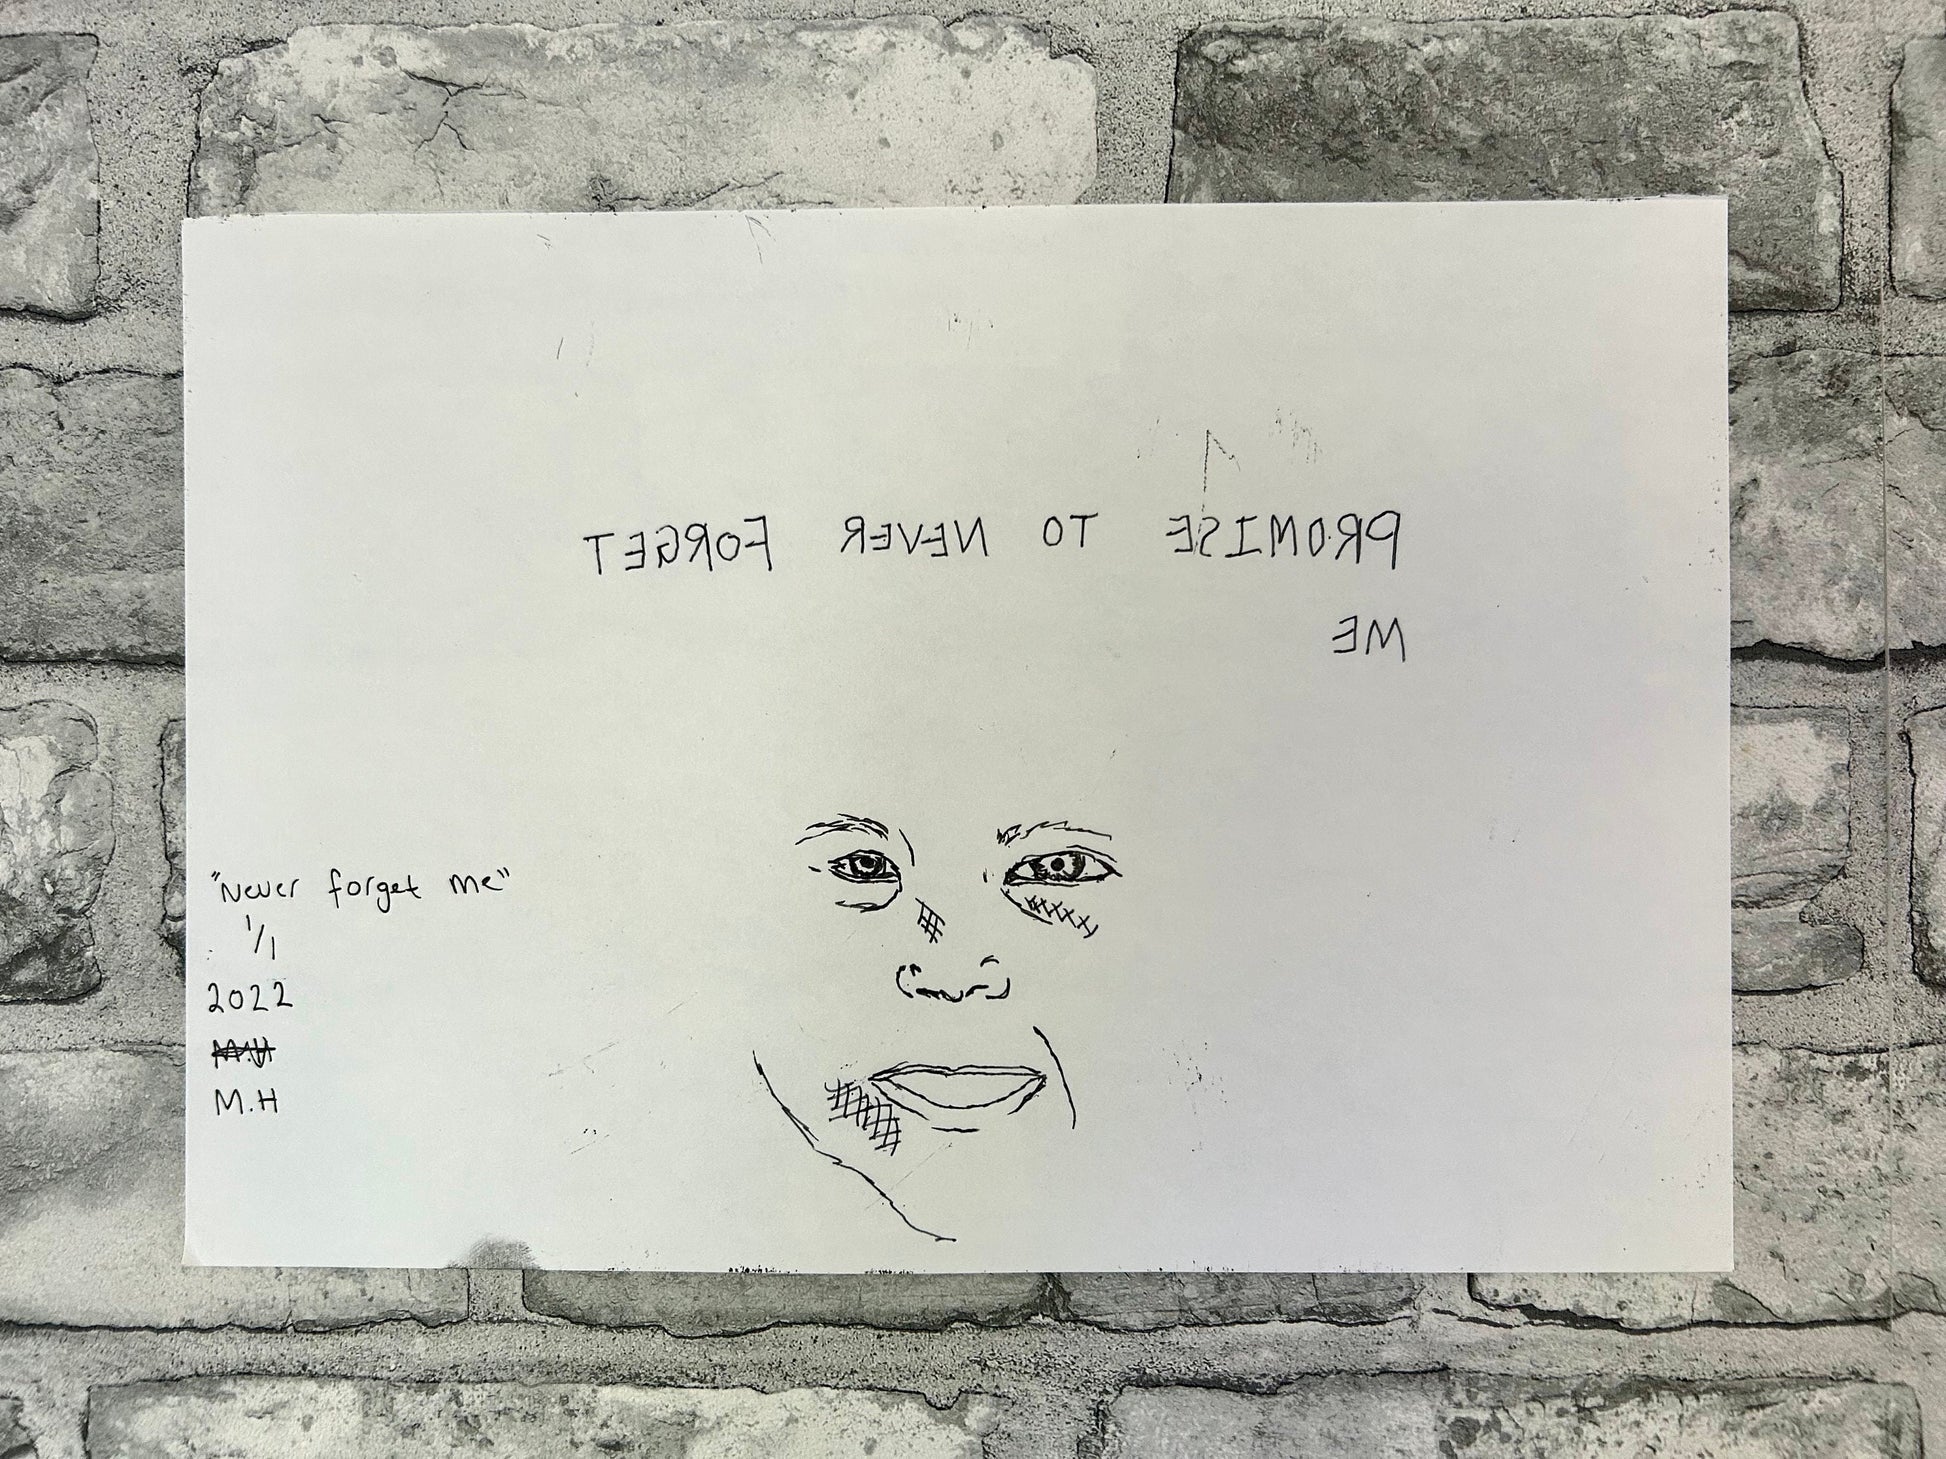 PROMISE TO NEVER FORGET
ME
"Never forget me"
1/1
2022
M.H
M.H